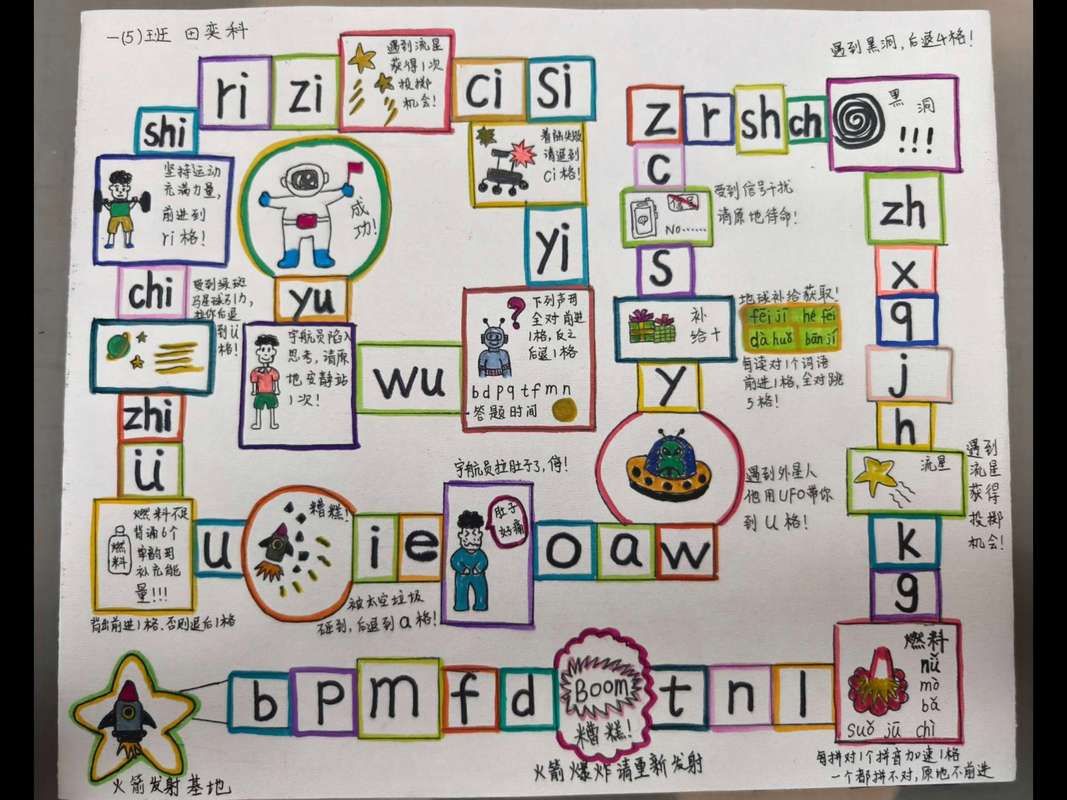 一(5)班 田奕科
火箭发射基地
b
p
m
f
d
Boom
糟糕!
火箭爆炸请重新发射
t
n
l
燃料
nǚ
mò
bǎ
suǒ jū chì
每拼对1个拼音加速1格
一个都拼不对,原地不前进
g
k
流星
遇到
流星
获得
投掷
机会!
h
j
q
x
zh
黑洞
!!!
遇到黑洞,后退4格!
ch
sh
r
z
c
信号
NO……
受到信号干扰
请原地待命!
s
补
给+
地球补给获取!
fēi jī hé fēi
dà huǒ bān jí
每读对1个词语
前进1格,全对跳
5格!
y
遇到外星人
他用UFO带你
到u格!
w
a
o
宇航员拉肚子了,停!
肚子
好痛
e
i
糟糕!
被太空垃圾
砸到,后退到a格!
u
燃料不足
背诵6个
单韵母
补充能
量!!!
燃料
背出前进1格、否则退后1格
ü
zhi
受到
球引力,
后退
到ü
格!
chi
坚持运动
充满力量,
前进到
ri格!
shi
ri
zi
遇到流星
获得1次
投掷
机会!
ci
si
着陆失败
请退到
ci格!
yi
下列声母
全对前进
1格,反之
后退1格
b d p q t f m n
答题时间
wu
宇航员陷入
思考,请原
地安静站
1次!
yu
成
功!